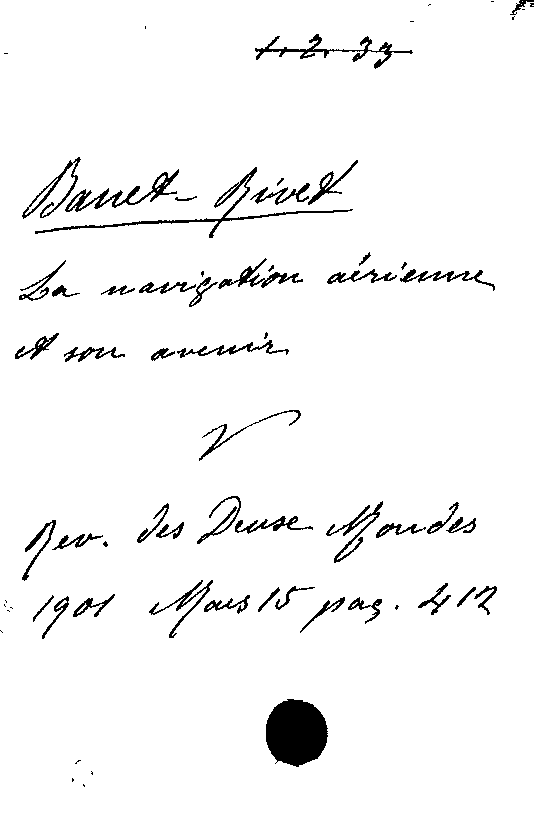 1. 2. 33
Banet-Rivet
La navigation aérienne
et son avenir
V
Rev. des Deux Mondes
1901 Mars 15 pag. 412